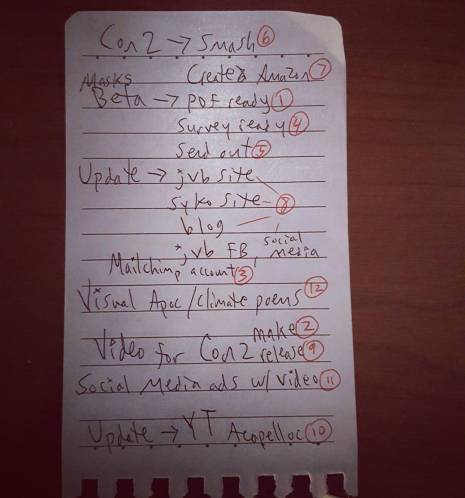 Con2 → Smash ⑥
Masks Create Amazon ⑦
Beta → PDF ready ①
Survey ready ④
Send out ⑤
Update → jvb site
Syko site - ⑧
blog
jvb FB, social media
Mailchimp account ③
Visual Apoc/climate poems ⑫
make ②
Video for Con2 release ⑨
Social Media ads w/ video ⑪
Update → YT Acapelloc ⑩